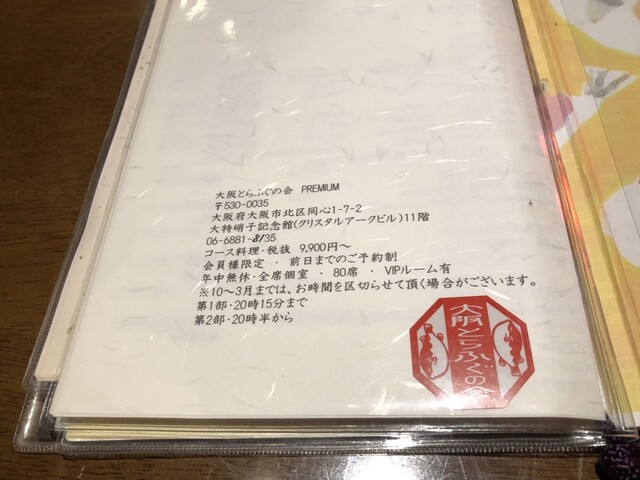 大阪とらふぐの会 PREMIUM
〒530-0035
大阪府大阪市北区同心1-7-2
大特硝子記念館(クリスタルアークビル)11階
06-6881-8135
コース料理・税抜 9,900円～
会員様限定 ・ 前日までのご予約制
年中無休・全席個室 ・ 80席 ・ VIPルーム有
※10～3月までは、お時間を区切らせて頂く場合がございます。
第1部・20時15分まで
第2部・20時半から
大阪とらふぐの会